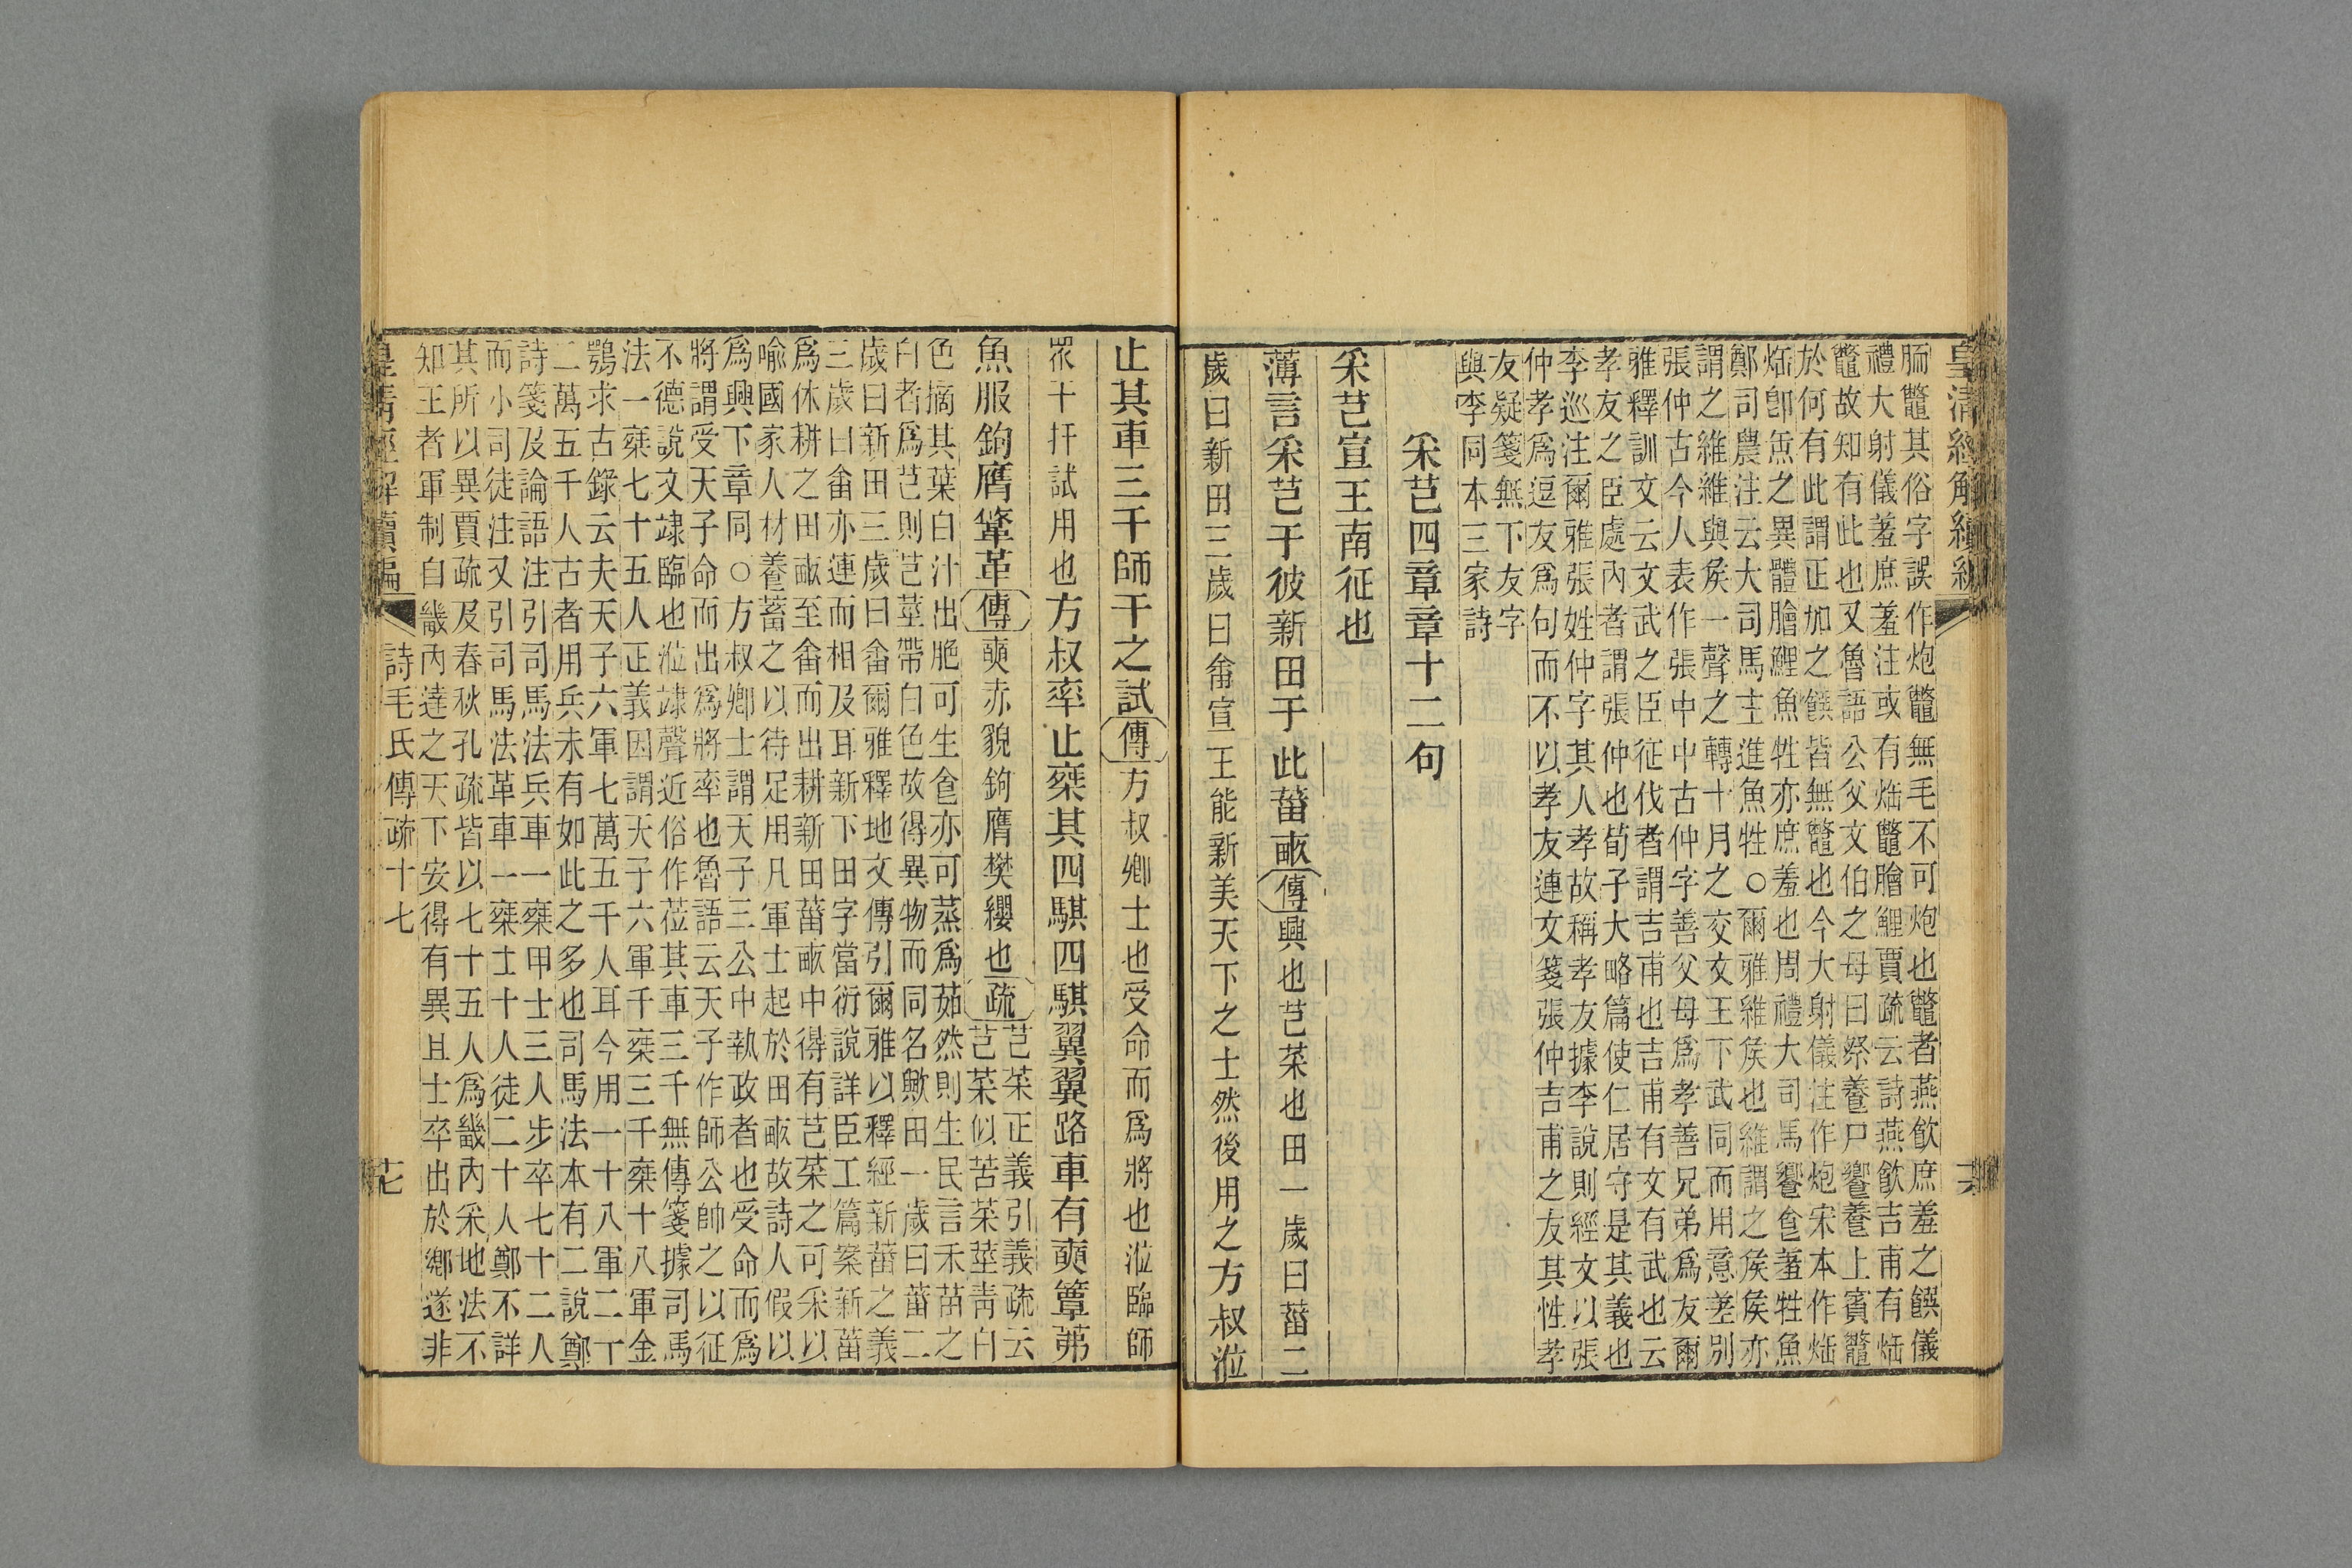 皇清經解續編
胹鼈其俗字誤作炮鼈無毛不可炮也鼈者燕飲庶羞之饌儀
禮大射儀羞庶羞注或有炰鼈膾鯉賈疏云詩燕飲吉甫有炰
鼈故知有此也又魯語公父文伯之母曰祭養尸饗養上賓鼈
於何有此謂正加之饌皆無鼈也今大射儀注作炮宋本作炰
炰卽𤈨之異體膾鯉魚牲亦庶羞也周禮大司馬饗食羞牲魚
鄭司農注云大司馬主進魚牲○爾雅維侯也維謂之侯侯亦
謂之維維與侯一聲之轉十月之交文王下武同而用意差別
張仲古今人表作張中中古仲字善父母爲孝善兄弟爲友爾
雅釋訓文云文武之臣征伐者謂吉甫也吉甫有文有武也云
孝友之臣處內者謂張仲也荀子大略篇使仁居守是其義也
李巡注爾雅張姓仲字其人孝故稱孝友據李說則經文以張
仲孝爲逗友爲句而不以孝友連文箋張仲吉甫之友其性孝
友疑箋無下友字
與李同本三家詩
采芑四章章十二句
采芑宣王南征也
薄言采芑于彼新田于此菑畝傳興也芑菜也田一歲曰菑二
歲曰新田三歲曰畬宣王能新美天下之士然後用之方叔涖
止其車三千師干之試傳方叔卿士也受命而爲將也涖臨師
眾干扞試用也方叔率止乘其四騏四騏翼翼路車有奭簟茀
魚服鉤膺鞗革傳奭赤貌鉤膺樊纓也疏芑菜正義引義疏云
芑菜似苦菜莖青白
色摘其葉白汁出脃可生食亦可蒸爲茹然則生民言禾苗之
白者爲芑則芑莖帶白色故得異物而同名歟田一歲曰菑二
歲曰新田三歲曰畬爾雅釋地文傳引爾雅以釋經新菑之義
三歲曰畬亦連而相及耳新下田字當衍說詳臣工篇案新菑
爲休耕之田畝至畬而出耕新田菑畝中得有芑菜之可采以
喩國家人材養蓄之以待足用凡軍士起於田畝故詩人假以
爲興下章同○方叔卿士謂天子三公中執政者也受命而爲
將謂受天子命而出爲將率也魯語云天子作師公帥之以征
不德說文䇐臨也涖䇐聲近俗作莅其車三千無傳箋據司馬
法一乘七十五人正義因謂天子六軍千乘三千乘十八軍金
鶚求古錄云夫天子六軍七萬五千人耳今用一十八軍二十
二萬五千人古者用兵未有如此之多也司馬法本有二說鄭
詩箋及論語注引司馬法兵車一乘甲士三人步卒七十二人
而小司徒注又引司馬法革車一乘士十人徒二十人鄭不詳
其所以異賈疏及春秋孔疏皆以七十五人爲畿內采地法不
知王者軍制自畿內達之天下安得有異且士卒出於鄉遂非
皇清經解續編
詩毛氏傳疏十七